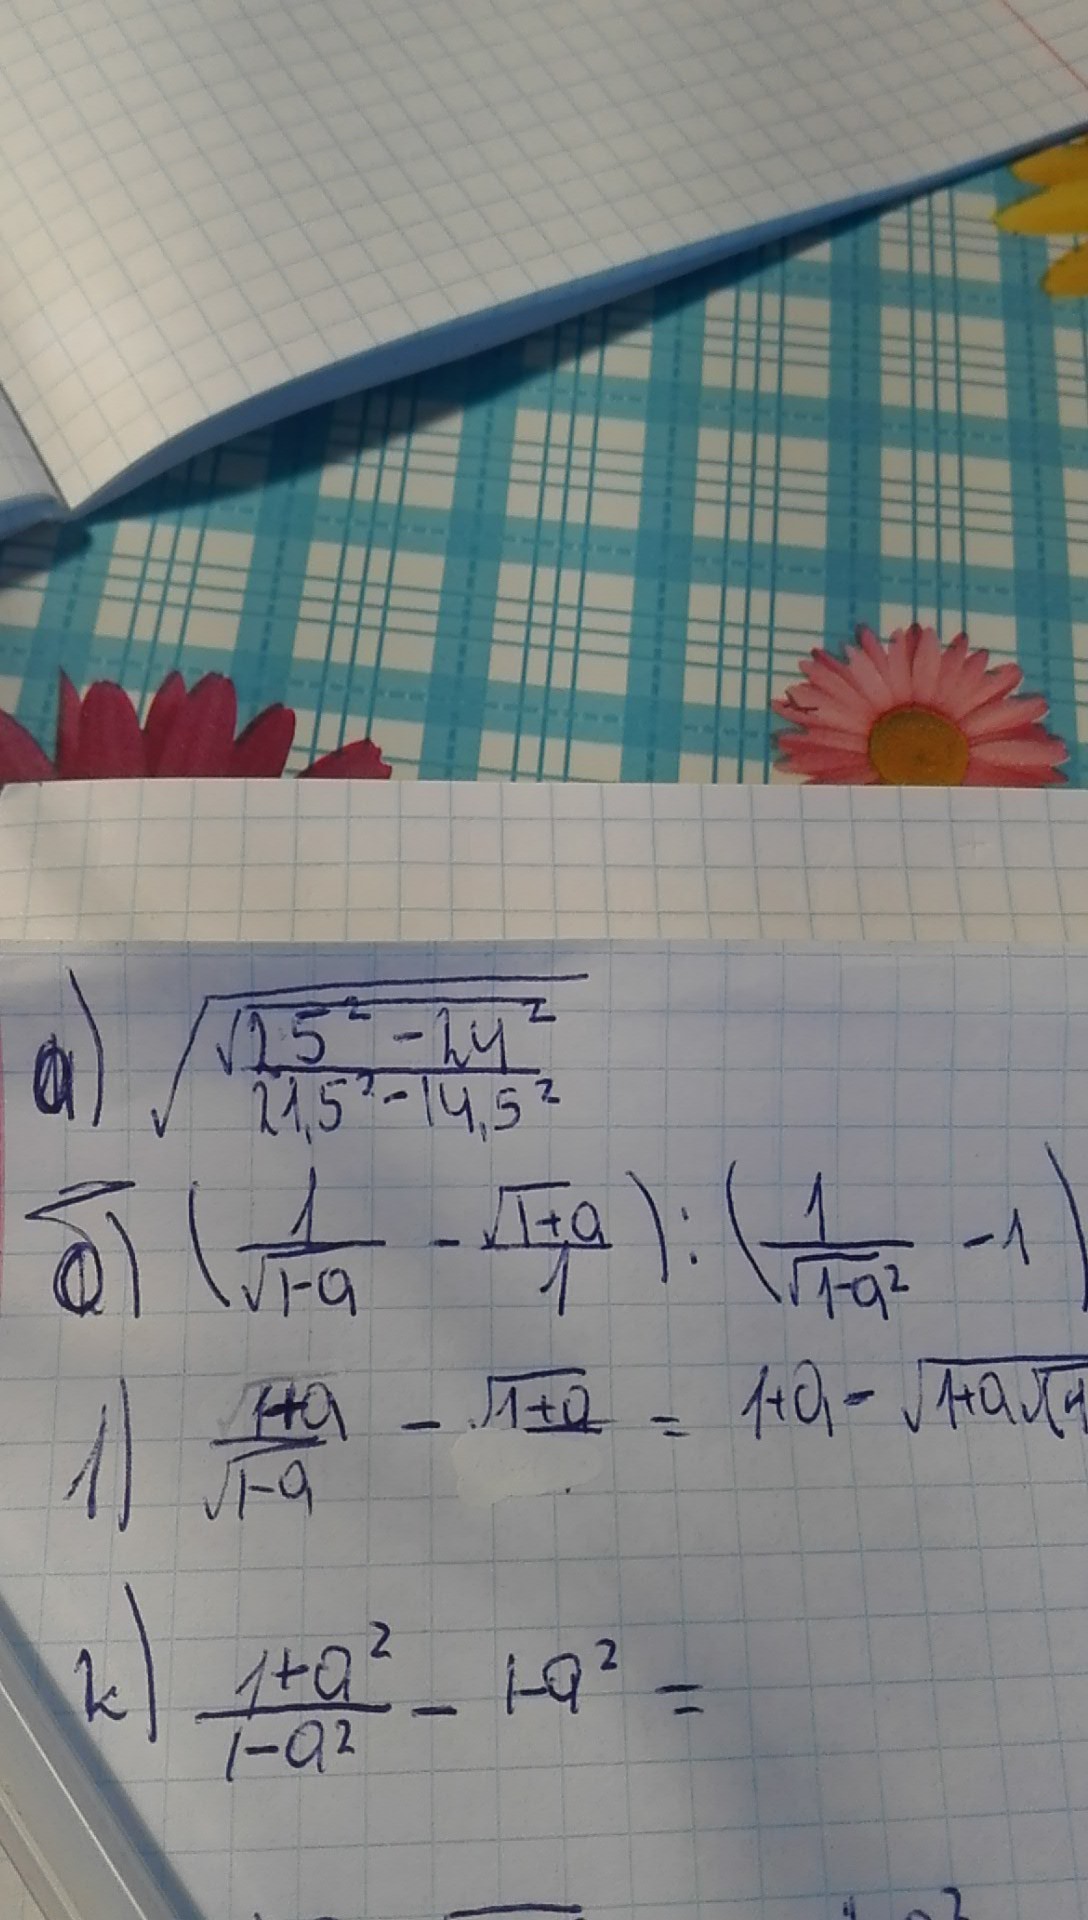 а) √(√(25² - 24²) / (21,5² - 14,5²))
б) (1/√(1-a) - √(1+a)/1) : (1/√(1-a²) - 1)
1) √(1+a)/√(1-a) - √(1+a) = 1+a - √(1+a)√(1
2) (1+a²)/(1-a²) - 1-a² =